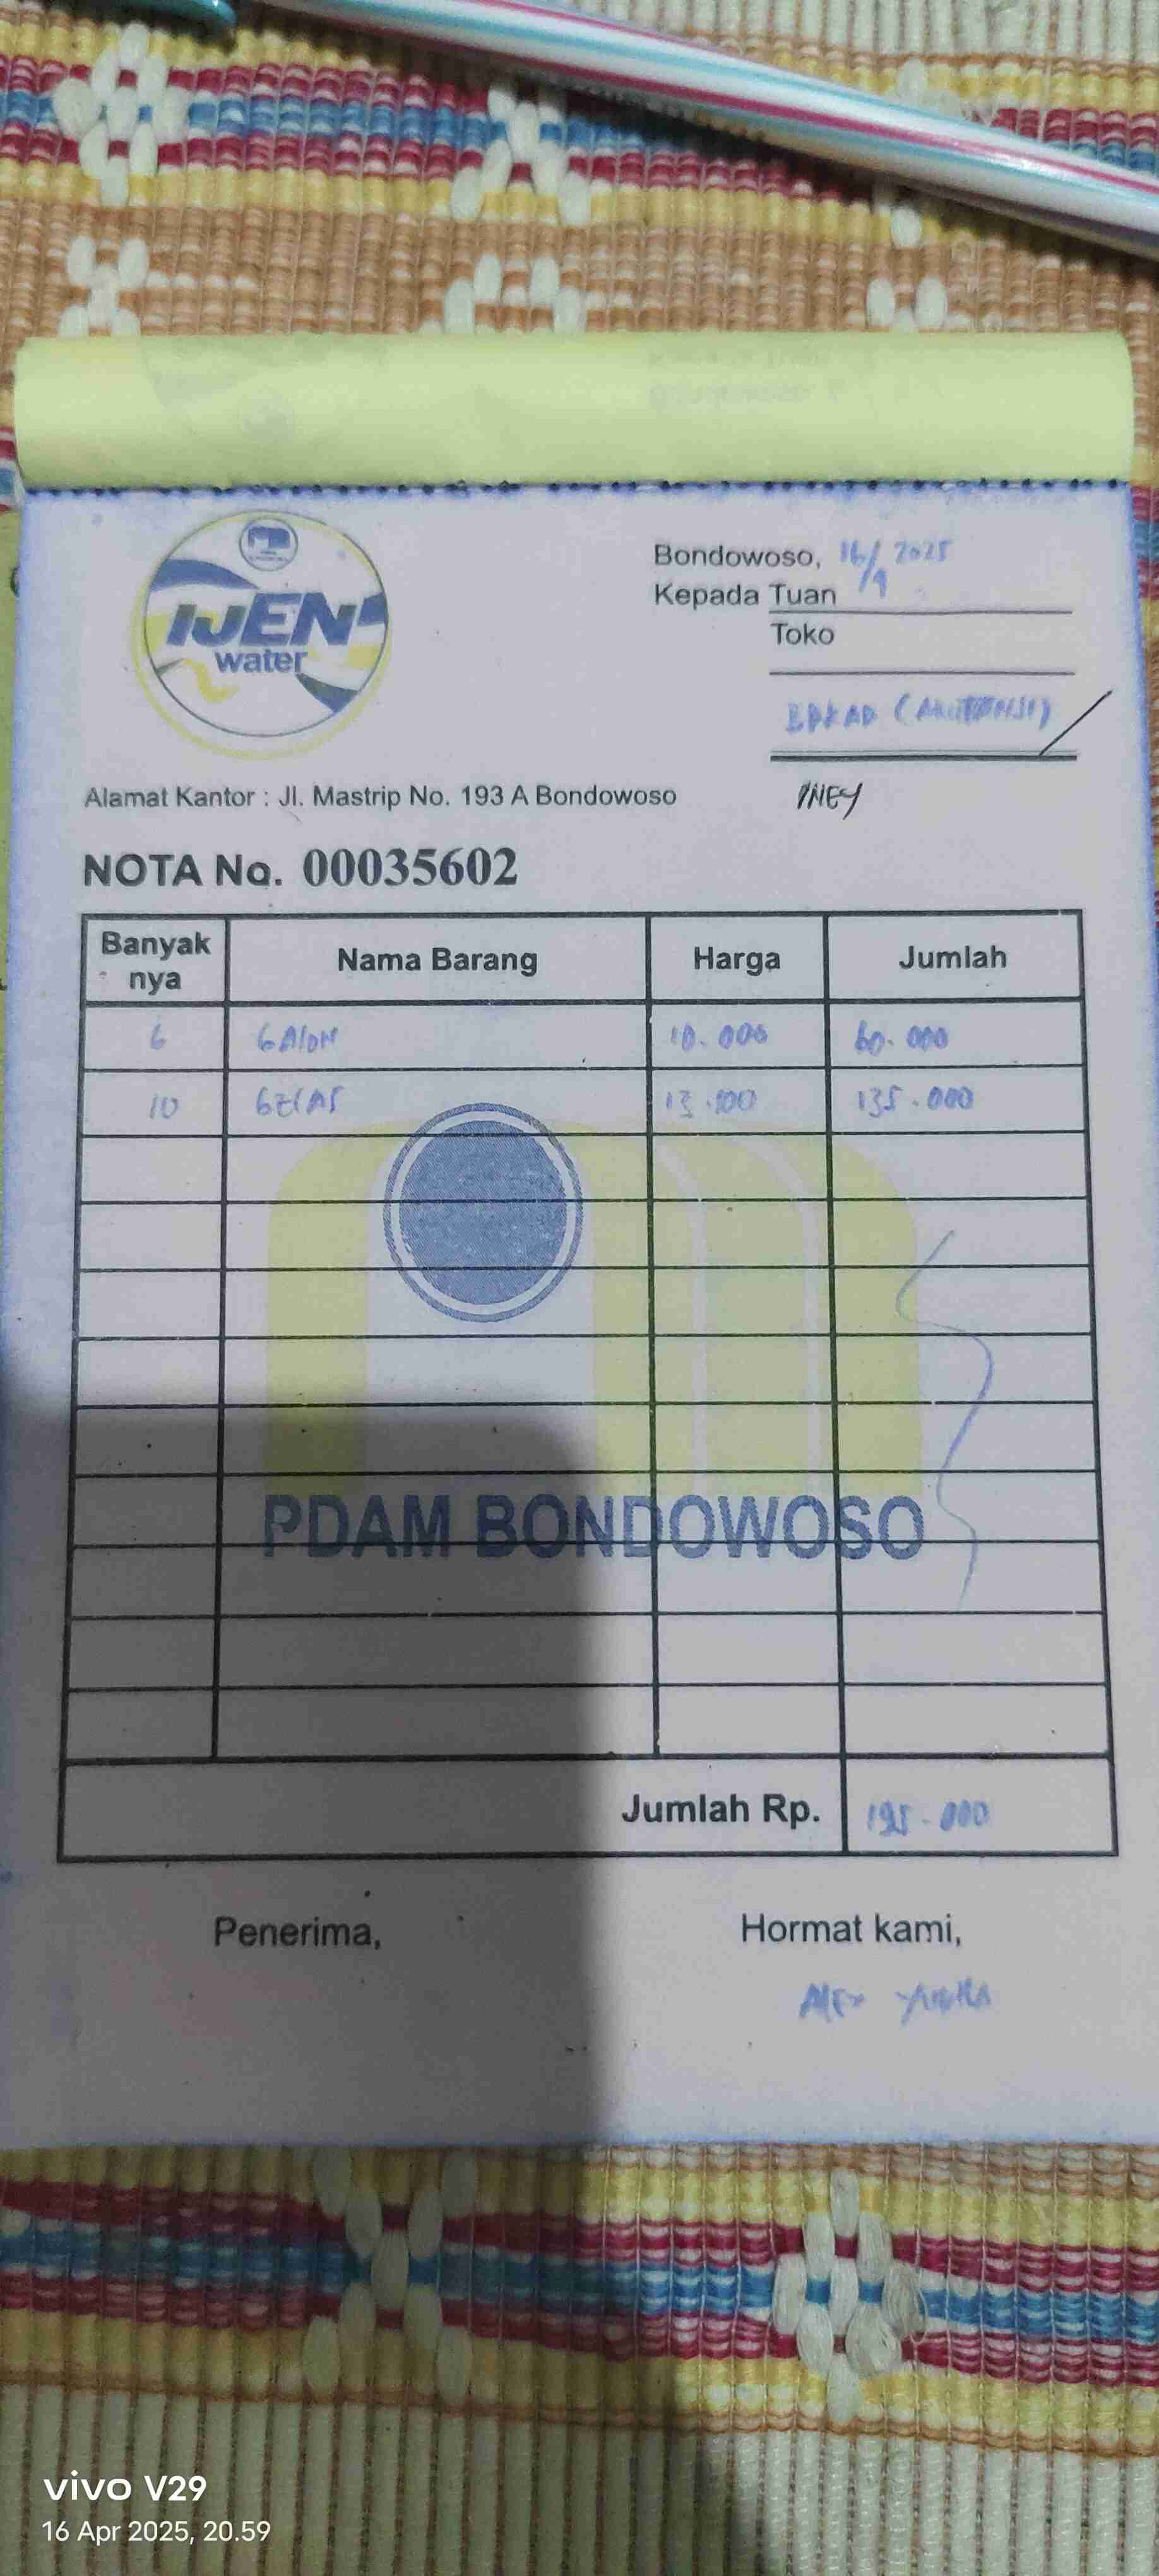 IJEN
water
Bondowoso, 16/4 2025
Kepada Tuan
Toko
BPKAD (AKUTANSI)
Alamat Kantor : Jl. Mastrip No. 193 A Bondowoso
NOTA No. 00035602
Banyak nya Nama Barang Harga Jumlah
6 GAlON 10.000 60.000
10 GElAS 13.500 135.000
PDAM BONDOWOSO
Jumlah Rp. 195.000
Penerima, Hormat kami,
AlEX
vivo V29
16 Apr 2025, 20.59